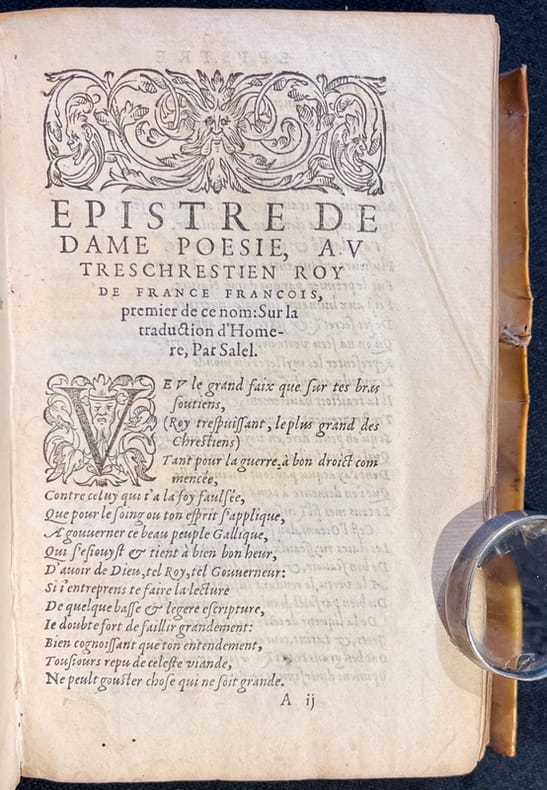 EPISTRE DE
DAME POESIE, AV
TRESCHRESTIEN ROY
DE FRANCE FRANCOIS,
premier de ce nom: Sur la
traduction d'Home-
re, Par Salel.
VEV le grand faix que sur tes bras
soutiens,
(Roy trespuissant, le plus grand des
Chrestiens)
Tant pour la guerre, à bon droict com
mencée,
Contre celuy qui t'a la foy faulsée,
Que pour le soing ou ton esprit s'applique,
A gouuerner ce beau peuple Gallique,
Qui s'esiouyst & tient à bien bon heur,
D'auoir de Dieu, tel Roy, tel Gouuerneur:
Si i'entreprens te faire la lecture
De quelque basse & legere escripture,
Ie doubte fort de faillir grandement:
Bien cognoissant que ton entendement,
Tousiours repu de celeste viande,
Ne peult gouster chose qui ne soit grande.
A ij